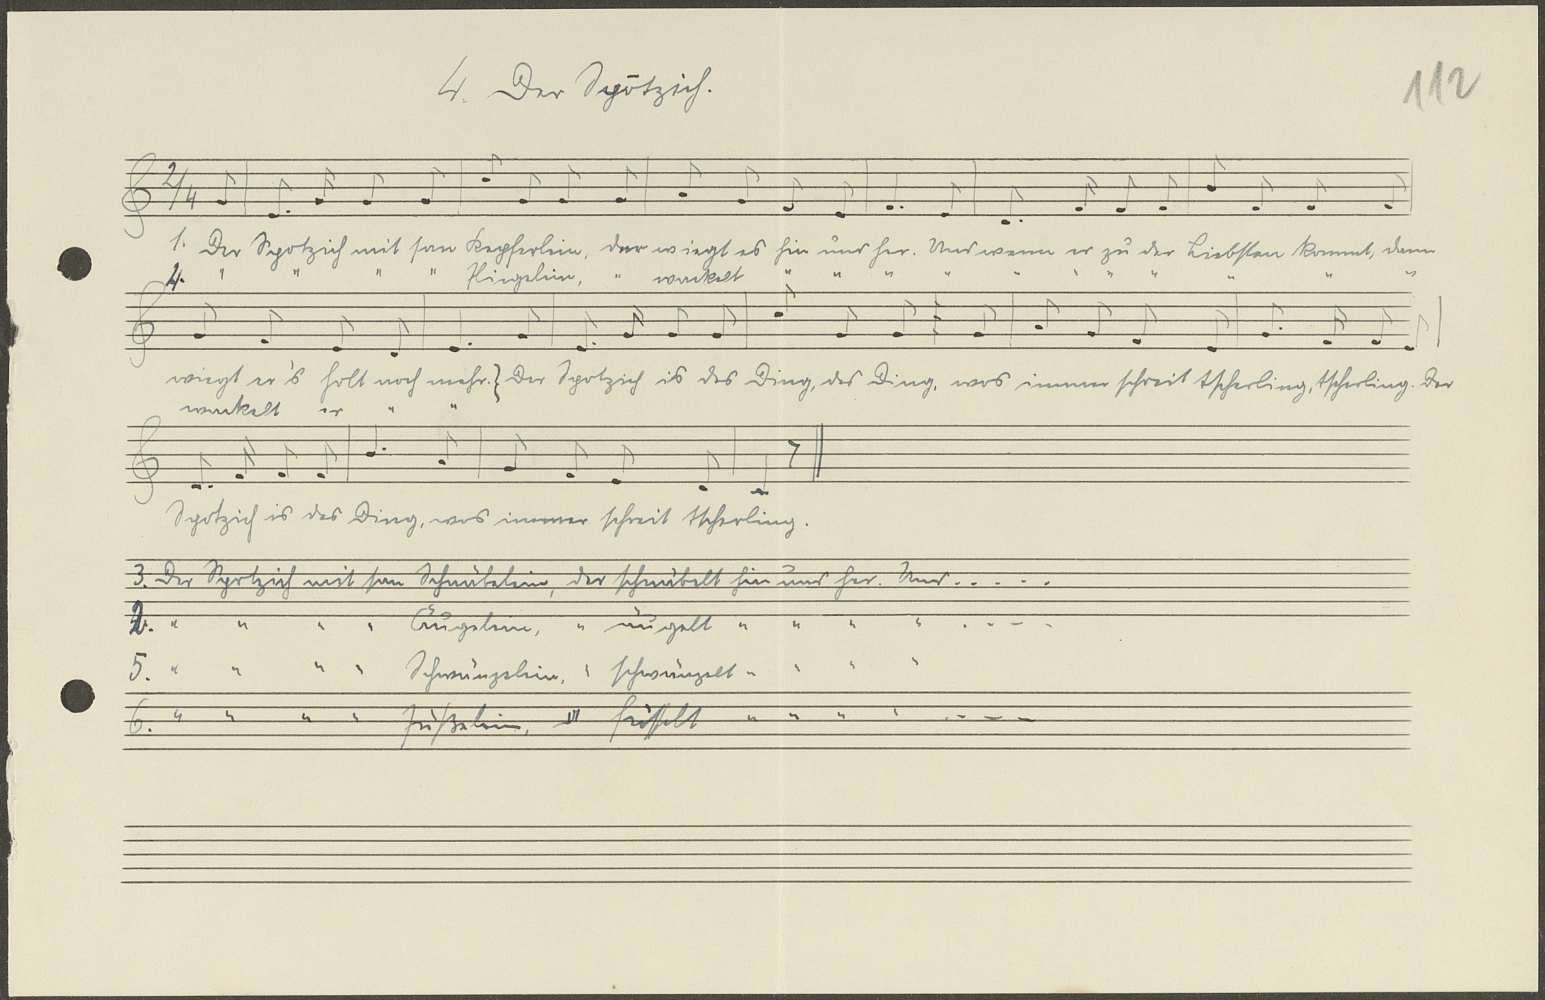 4. Der Spōtzich.
112
2/4
1. Der Spotzich mit san Kepferlein, der wiegt es hin und her. Und wenn er zu der Liebsten kommt, dann
4. " " " " Fliegelein, " wackelt " " " " " " " " " " "
wiegt er's holt noch mehr. } Der Spotzich is des Ding, des Ding, wos immer schreit tscherling, tscherling. Der
wackelt er " "
Spotzich is des Ding, wos immer schreit tscherling.
3. Der Spotzich mit san Schnäbelein, der schnäbelt hin und her. Und . . . . .
2. " " " " Äugelein, " äugelt " " " " . - - -
5. " " " " Schwänzelein, " schwänzelt " " " "
6. " " " " Füßelein, " füsselt " " " " . - - -